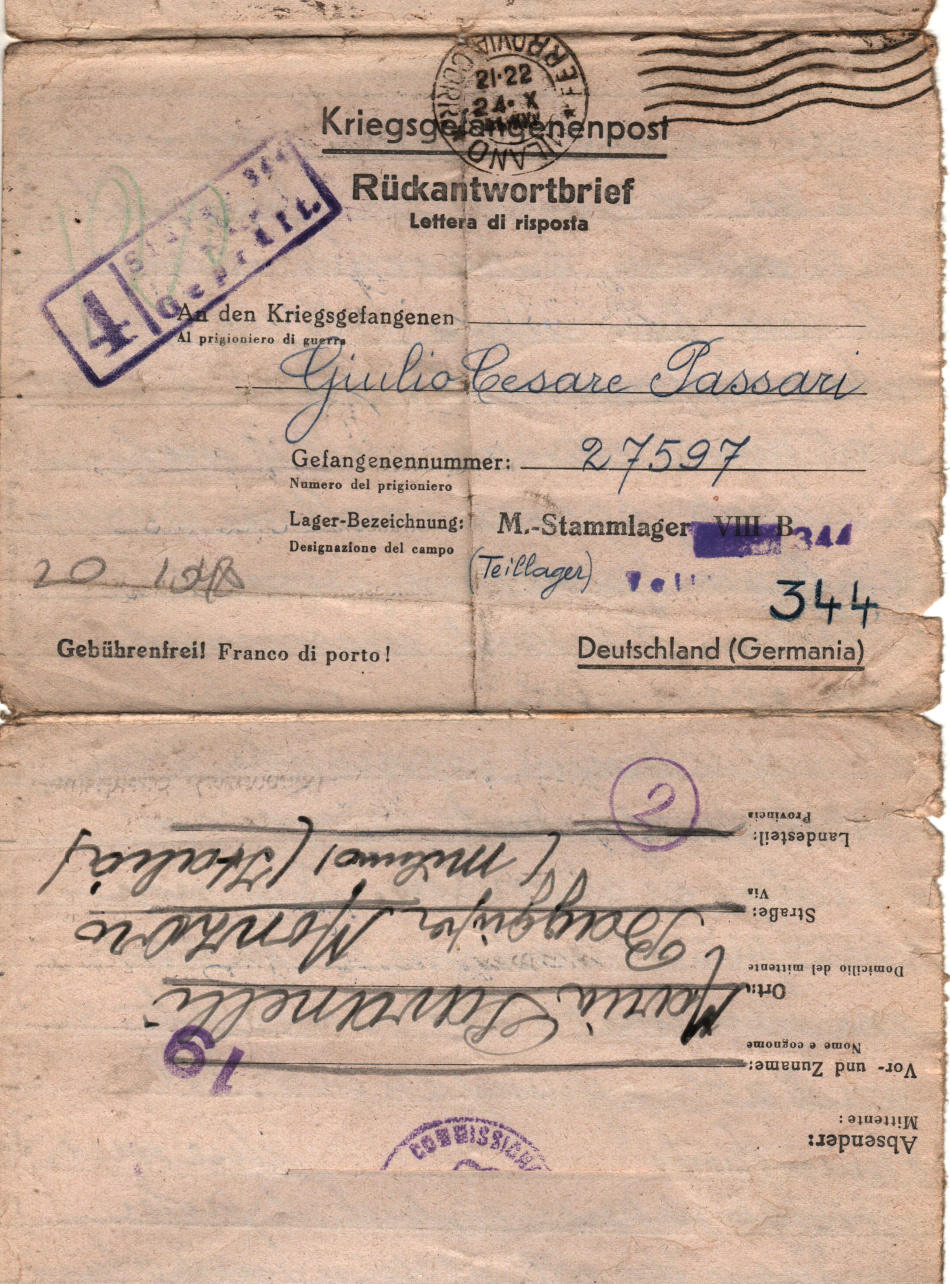 MILANO FERROVIA CORR.
21·22
24· X
Kriegsgefangenenpost
Rückantwortbrief
Lettera di risposta
4 Stalag 344
Geprüft.
An den Kriegsgefangenen
Al prigioniero di guerra
Giulio Cesare Passari
Gefangenennummer: 27597
Numero del prigioniero
Lager-Bezeichnung: M.-Stammlager VIII B 344
Designazione del campo
(Teillager)
344
20
Gebührenfrei! Franco di porto!
Deutschland (Germania)
Absender:
Mittente:
Vor- und Zuname:
Nome e cognome
19
Maria
Ort:
Domicilio del mittente
Straße:
Via
(Italia)
Landesteil:
Provincia
2